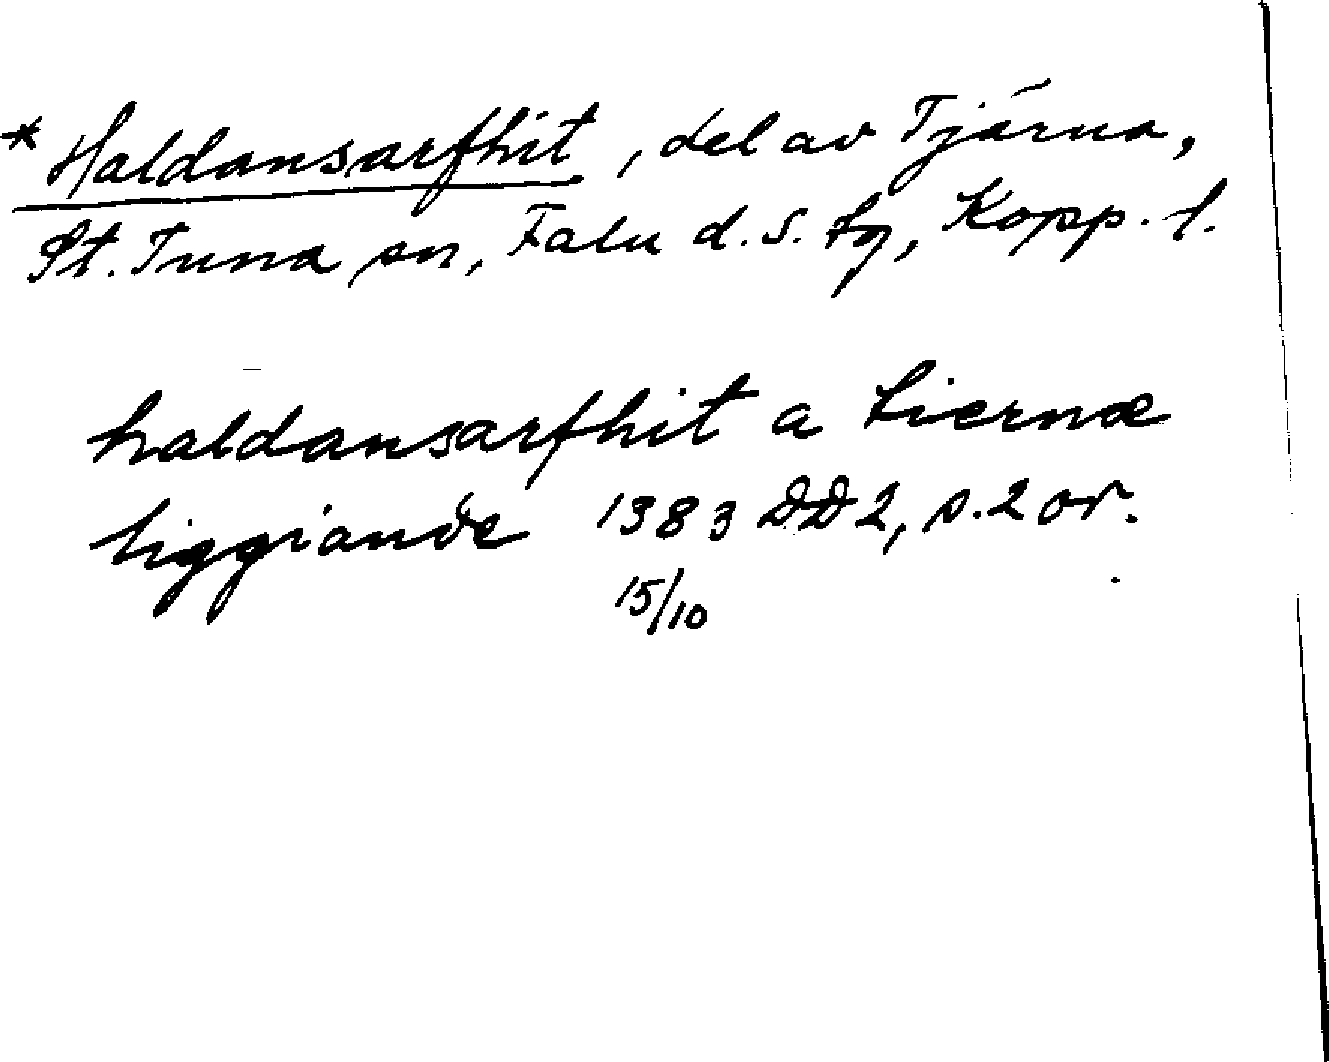 * Haldansarfhit, del av Tjärna,
St. Tuna sn, Falu d.s. tg, Kopp. l.
haldansarfhit a tiernæ
liggiande 1383 DD 2, s. 2 or.
15/10